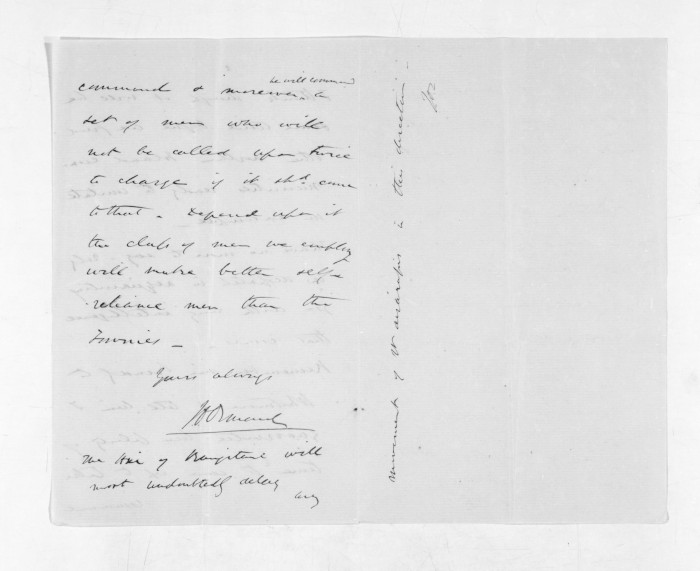 he will command
command & moreover a
set of men who will
not be called upon twice
to charge if it shd. come
to that - Depend upon it
the class of men we employ
will make better self
reliance men than the
Townies -
Yours always
J D Ormond
The of Rangitane will
most undoubtedly delay any
movement of in this direction -